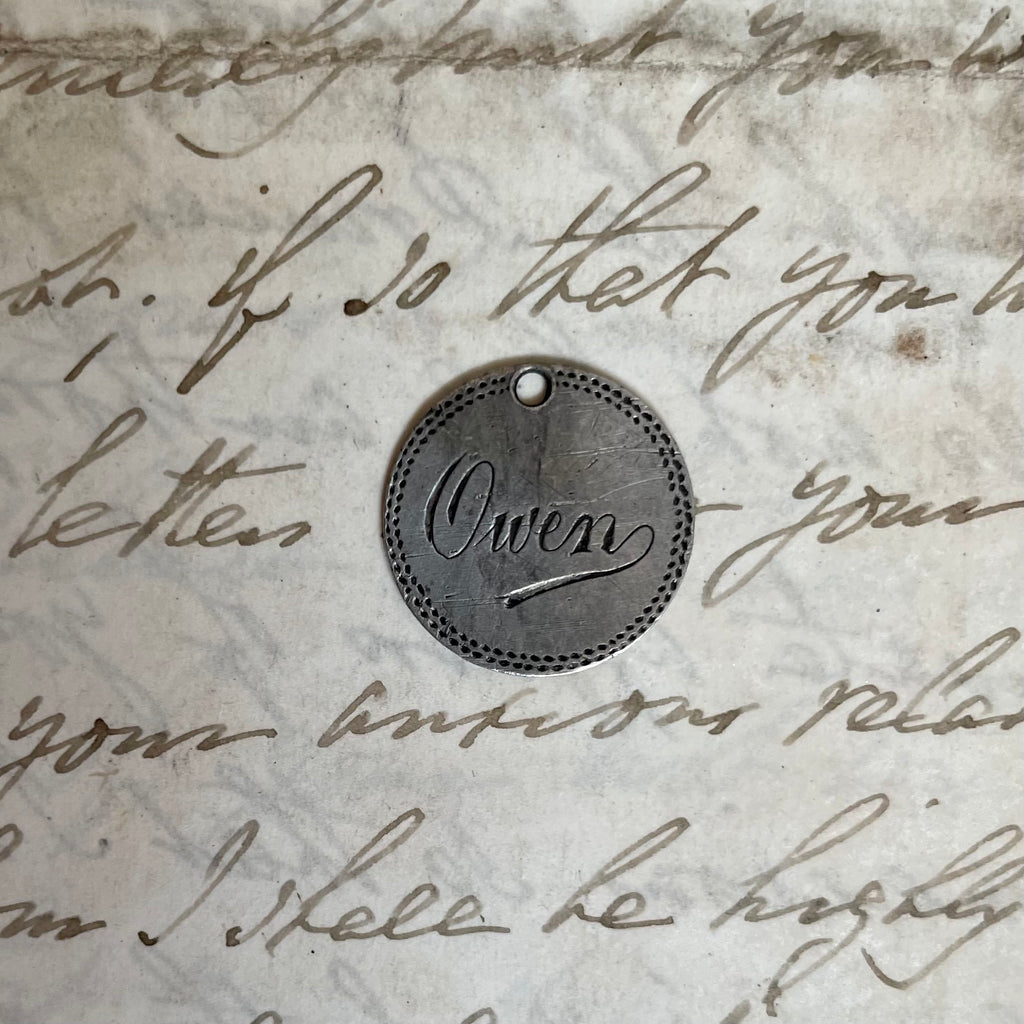 you
if so that you
letter your
Owen
your anxious
I shall be highly